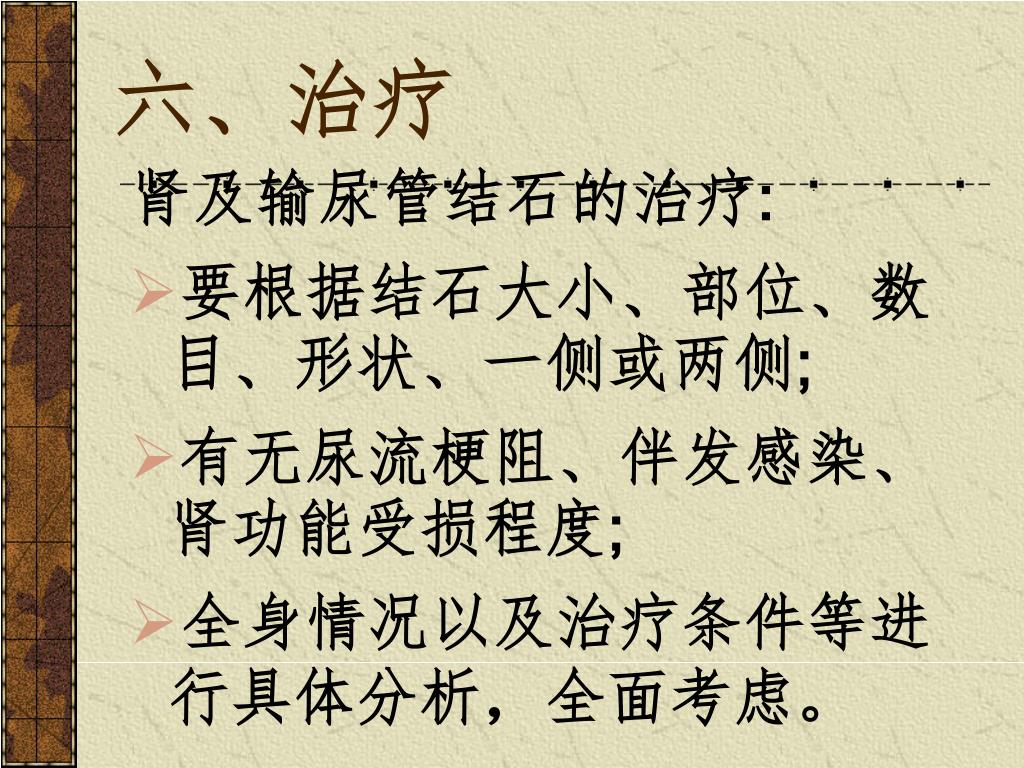 六、治疗
肾及输尿管结石的治疗:
要根据结石大小、部位、数
目、形状、一侧或两侧;
有无尿流梗阻、伴发感染、
肾功能受损程度;
全身情况以及治疗条件等进
行具体分析，全面考虑。